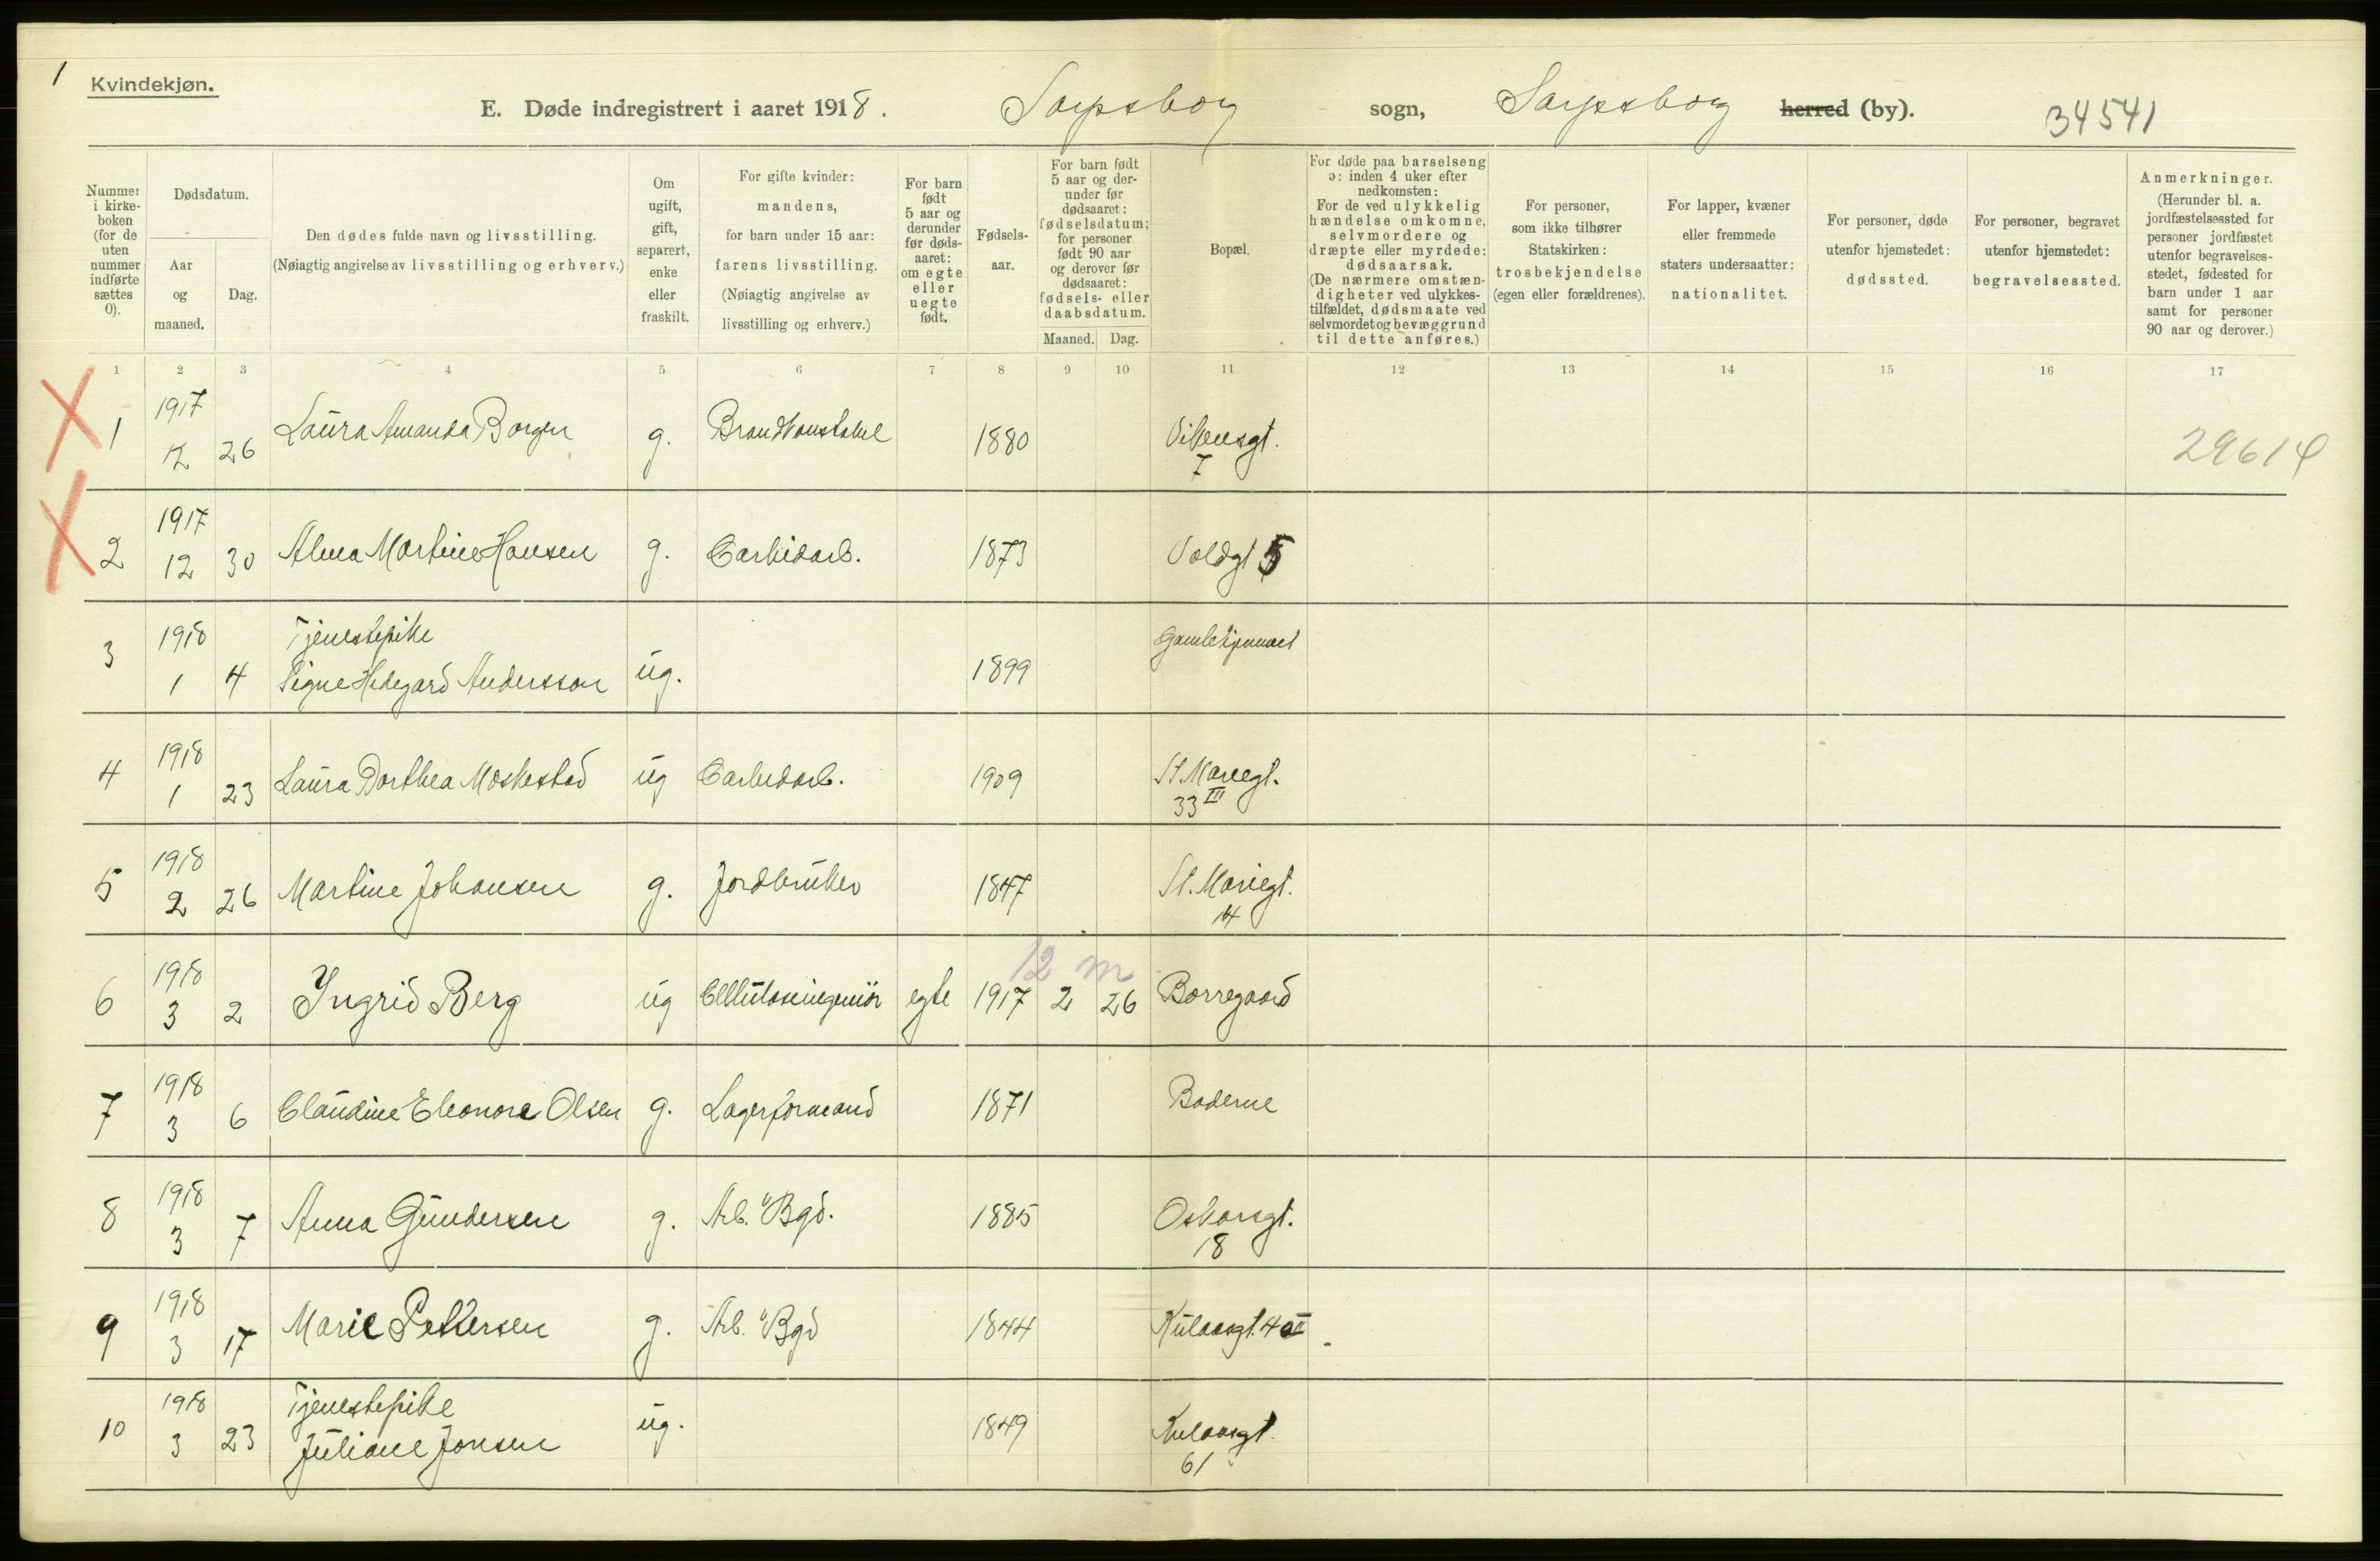 1
Kvindekjøn.
E. Døde indregistrert i aaret 1918. Sarpsborg sogn, Sarpsborg herred (by). 34541
Nummer i kirkeboken (for de uten nummer indførte sættes 0).
Dødsdatum.
Aar og maaned.
Dag.
Den dødes fulde navn og livsstilling.
(Nøiagtig angivelse av livsstilling og erhverv.)
Om ugift, gift, separert, enke eller fraskilt.
For gifte kvinder: mandens, for barn under 15 aar: farens livsstilling. (Nøiagtig angivelse av livsstilling og erhverv.)
For barn født 5 aar og derunder før dødsaaret: om egte eller uegte født.
Fødselsaar.
For barn født 5 aar og derunder før dødsaaret: fødselsdatum; for personer født 90 aar og derover før dødsaaret: fødsels- eller daabsdatum.
Maaned. Dag.
Bopæl.
For døde paa barselseng ɔ: inden 4 uker efter nedkomsten: For de ved ulykkelig hændelse omkomne, selvmordere og dræpte eller myrdede: dødsaarsak. (De nærmere omstændigheter ved ulykkestilfældet, dødsmaate ved selvmordet og bevæggrund til dette anføres.)
For personer, som ikke tilhører Statskirken: trosbekjendelse (egen eller forældrenes).
For lapper, kvæner eller fremmede staters undersaatter: nationalitet.
For personer, døde utenfor hjemstedet: dødssted.
For personer, begravet utenfor hjemstedet: begravelsessted.
Anmerkninger. (Herunder bl. a. jordfæstelsessted for personer jordfæstet utenfor begravelsesstedet, fødested for barn under 1 aar samt for personer 90 aar og derover.)
1 2 3 4 5 6 7 8 9 10 11 12 13 14 15 16 17
1 1917 12 26 Laura Amanda Borgen g. Brandkonstabel 1880 Vikensgt. 7 29614
2 1917 12 30 Alma Martine Hansen g. Carbidarb. 1873 Voldgt 5
3 1918 1 4 Tjenestepike Signe Hedegard Andersson ug. 1899
4 1918 1 23 Laura Dorthea Moskestad ug Carbidarb. 1909 St. Mariegt. 33 III
5 1918 2 26 Martine Johansen g. Jordbruker 1847 St. Mariegt. 14
12 m
6 1918 3 2 Ingrid Berg ug Celluloseingeniör egte 1917 2 26 Borregaard
7 1918 3 6 Claudine Eleonore Olsen g. Lagerformand 1871 Boderne
8 1918 3 7 Anna Gundersen g. Arb. "Bgd. 1885 Oskarsgt. 18
9 1918 3 17 Marie Pettersen g. Arb. "Bgd 1844 Kulaasgt. 40 II
10 1918 3 23 Tjenestepike Juliane Jonsen ug. 1849 Kulaasgt. 61